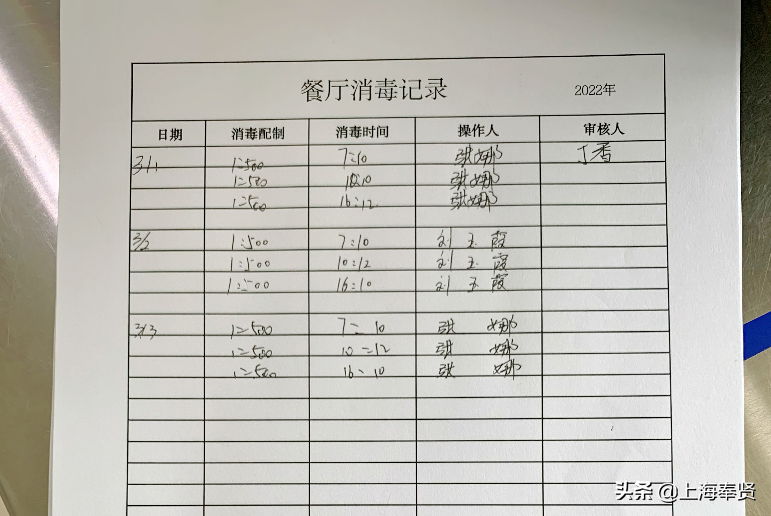 餐厅消毒记录 2022年
日期 消毒配制 消毒时间 操作人 审核人
3/1 1:500 7:10 张娜 丁香
1:500 10:10 张娜
1:500 16:12 张娜
3/2 1:500 7:10 刘玉霞
1:500 10:12 刘玉霞
1:500 16:10 刘玉霞
3/3 1:500 7:10 张娜
1:500 10:12 张娜
1:500 16:10 张娜
头条 @上海奉贤